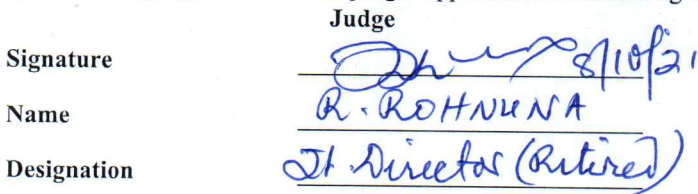 Judge
Signature 8/10/21
Name R. ROHNUNA
Designation Jt. Director (Retired)